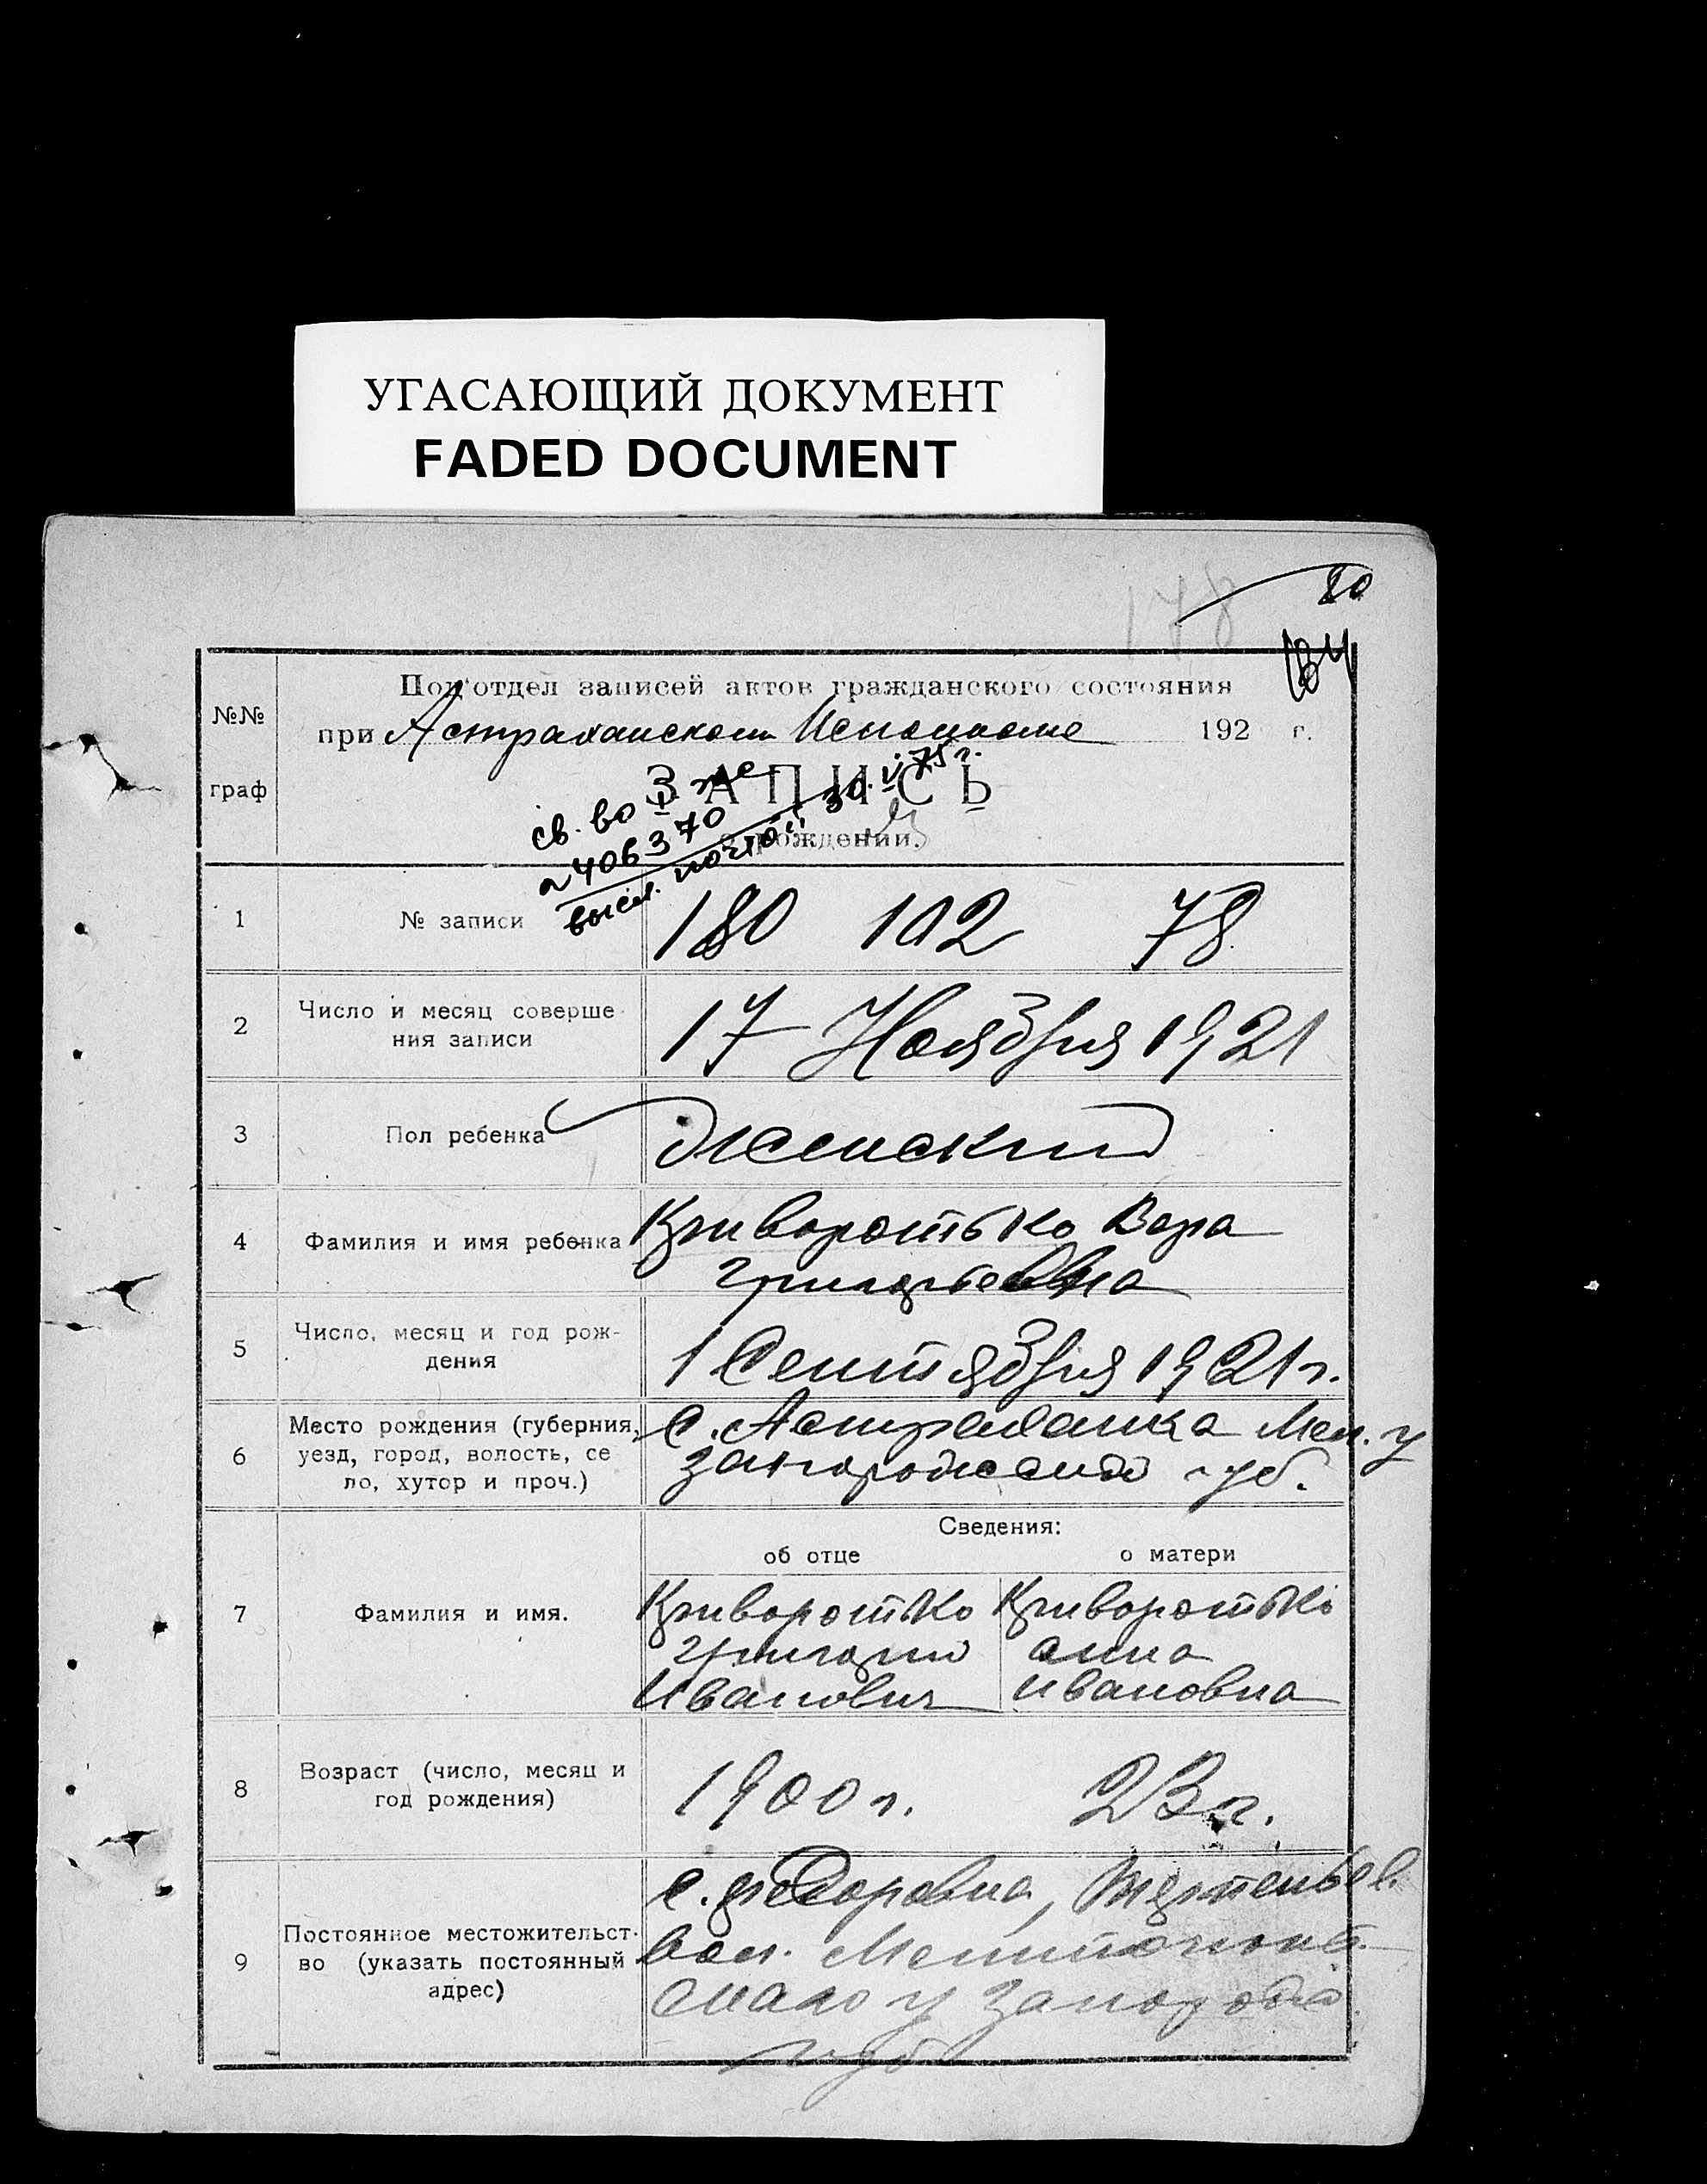 УГАСАЮЩИЙ ДОКУМЕНТ
FADED DOCUMENT
178
80
184
№№
граф
Под'отдел записей актов гражданского состояния
при Астраханском Исполкоме 192 г.
ЗАПИСЬ
о рождении.
св. во I
406370
высл. почтой 30.V 75 г.
1 № записи 180 102 78
2 Число и месяц соверше-
ния записи
17 Ноября 1921
3 Пол ребенка женский
4 Фамилия и имя ребенка Криворотько Вера
Григорьевна
5 Число, месяц и год рож-
дения
1 Сентября 1921 г.
6 Место рождения (губерния,
уезд, город, волость, се
ло, хутор и проч.)
С. Астраханка Мел. у
Запорожской губ.
Сведения:
об отце о матери
7 Фамилия и имя.
Криворотько
Григорий
Иванович
Криворотько
анна
ивановна
8 Возраст (число, месяц и
год рождения)
1900 г. 23 г.
9 Постоянное местожительст-
во (указать постоянный
адрес)
С. Федоровка,
вол. Мелитополь
ского у Запорож
губ